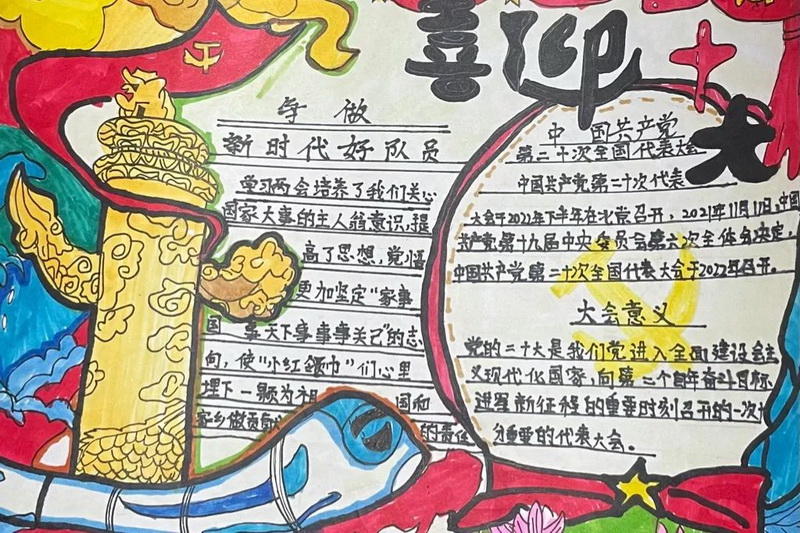 喜迎十大
争做
新时代好队员
学习两会培养了我们关心
国家大事的主人翁意识,提
高了思想,觉悟
更加坚定“家事
国事天下事事事关己”的志
向,使“小红领巾”们心里
埋下一颗为祖国和
家乡做贡献的责任
中国共产党
第二十次全国代表大会
中国共产党第二十次代表
大会于2022年下半年在北京召开,2021年11月11日,中国
共产党第十九届中央委员会第六次全体会决定,
中国共产党第二十次全国代表大会于2022年召开。
大会意义
党的二十大是我们党进入全面建设会主
义现代化国家,向第二个百年奋斗目标
进军新征程的重要时刻召开的一次
分重要的代表大会。